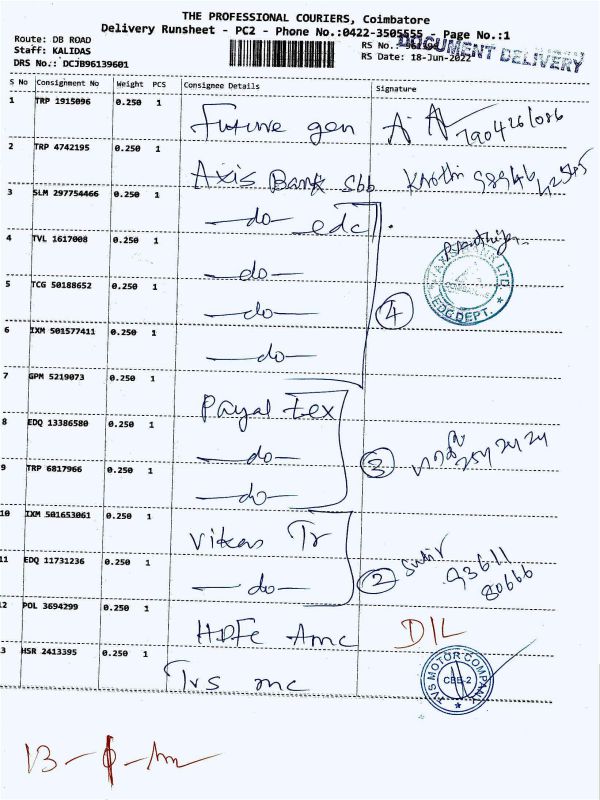 THE PROFESSIONAL COURIERS, Coimbatore
Delivery Runsheet - PC2 - Phone No.:0422-3505555 - Page No.:1
Route: DB ROAD
Staff: KALIDAS
DRS No.: DCJB96139601
RS No.:
DOCUMENT DELIVERY
RS Date: 18-Jun-2022
S No Consignment No Weight PCS Consignee Details Signature
1 TRP 1915096 0.250 1 Future gen 7904261086
2 TRP 4742195 0.250 1 Axis Bank Sbb
3 SLM 297754466 0.250 1 —do— edc
4 TVL 1617008 0.250 1 —do—
5 TCG 50188652 0.250 1 —do— 4
EDC DEPT.
6 IXM 501577411 0.250 1 —do—
7 GPM 5219073 0.250 1 Payal tex
8 EDQ 13386580 0.250 1 —do— 3
9 TRP 6817966 0.250 1 —do—
10 IXM 501653061 0.250 1 Vikas Tr
11 EDQ 11731236 0.250 1 —do— 2 93611 80666
12 POL 3694299 0.250 1 HDFC Amc D/L
13 HSR 2413395 0.250 1 Tvs mc
TVS MOTOR COMPANY
CBE-2